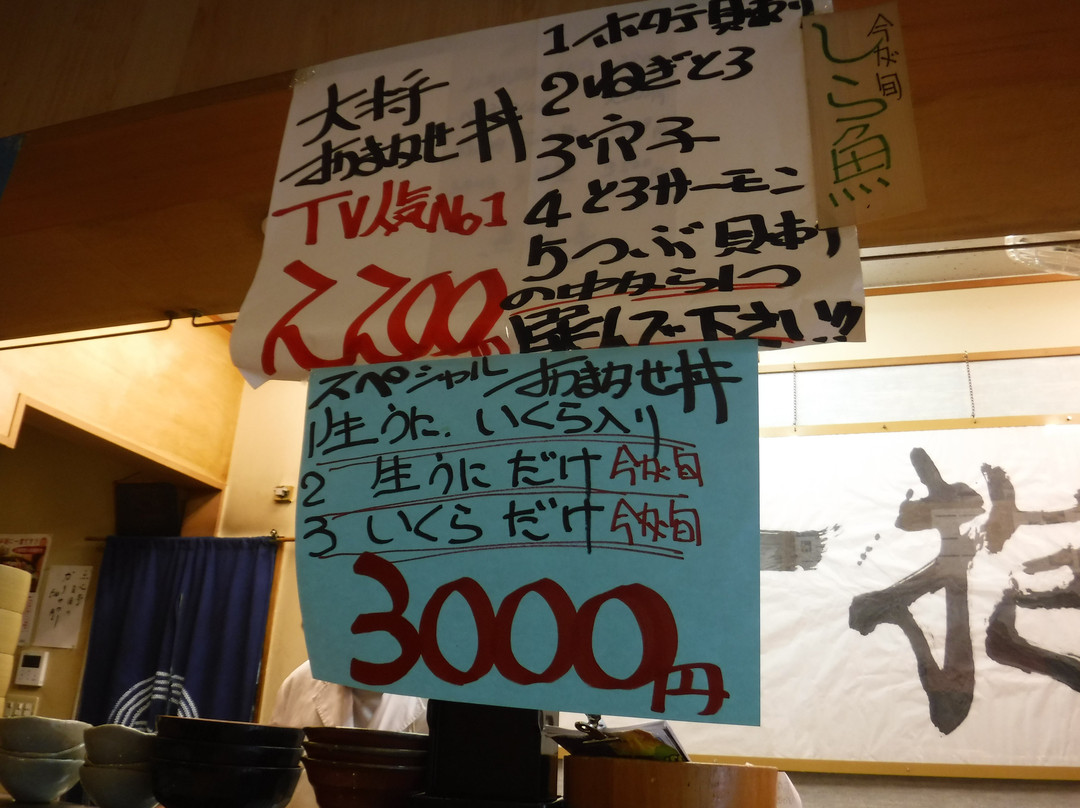 大将
おまかせ丼
TV人気No1
2200
1 ホタテ貝あり
2 ねぎとろ
3 穴子
4 とろサーモン
5 つぶ貝あり
の中から1つ
選んで下さい!!
今が旬
しら魚
スペシャル おまかせ丼
1 生うに、いくら入り
2 生うに だけ 今が旬
3 いくら だけ 今が旬
3000円